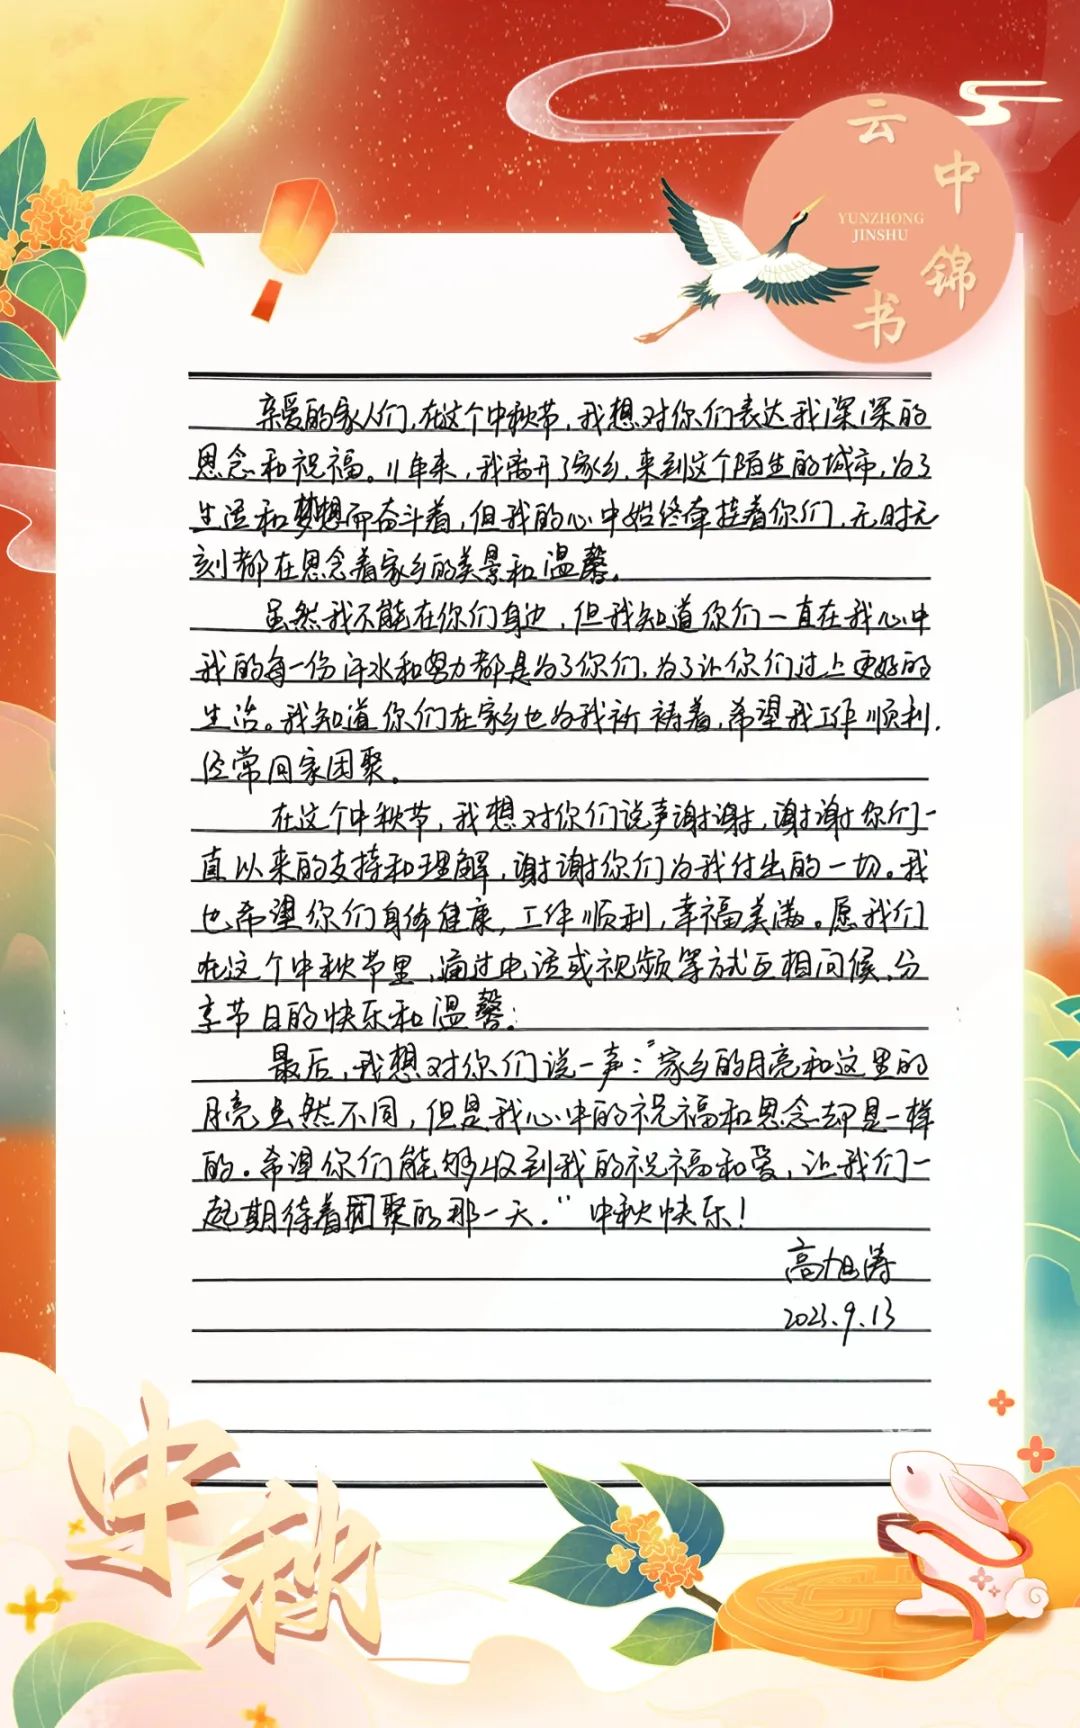 云中锦书
YUNZHONG
JINSHU
亲爱的家人们,在这个中秋节,我想对你们表达我深深的
思念和祝福。11年来,我离开了家乡,来到这个陌生的城市,为了
生活和梦想而奋斗着,但我的心中始终牵挂着你们,无时无
刻都在思念着家乡的美景和温馨。
虽然我不能在你们身边,但我知道你们一直在我心中
我的每一份汗水和努力都是为了你们,为了让你们过上更好的
生活。我知道你们在家乡也为我祈祷着,希望我工作顺利,
经常回家团聚。
在这个中秋节,我想对你们说声谢谢,谢谢你们一
直以来的支持和理解,谢谢你们为我付出的一切。我
也希望你们身体健康,工作顺利,幸福美满。愿我们
在这个中秋节里,通过电话或视频等方式互相问候,分
享节日的快乐和温馨。
最后,我想对你们说一声:“家乡的月亮和这里的
月亮虽然不同,但是我心中的祝福和思念却是一样
的。希望你们能够收到我的祝福和爱,让我们一
起期待着团聚的那一天。”中秋快乐!
高旭涛
2023.9.13
中秋